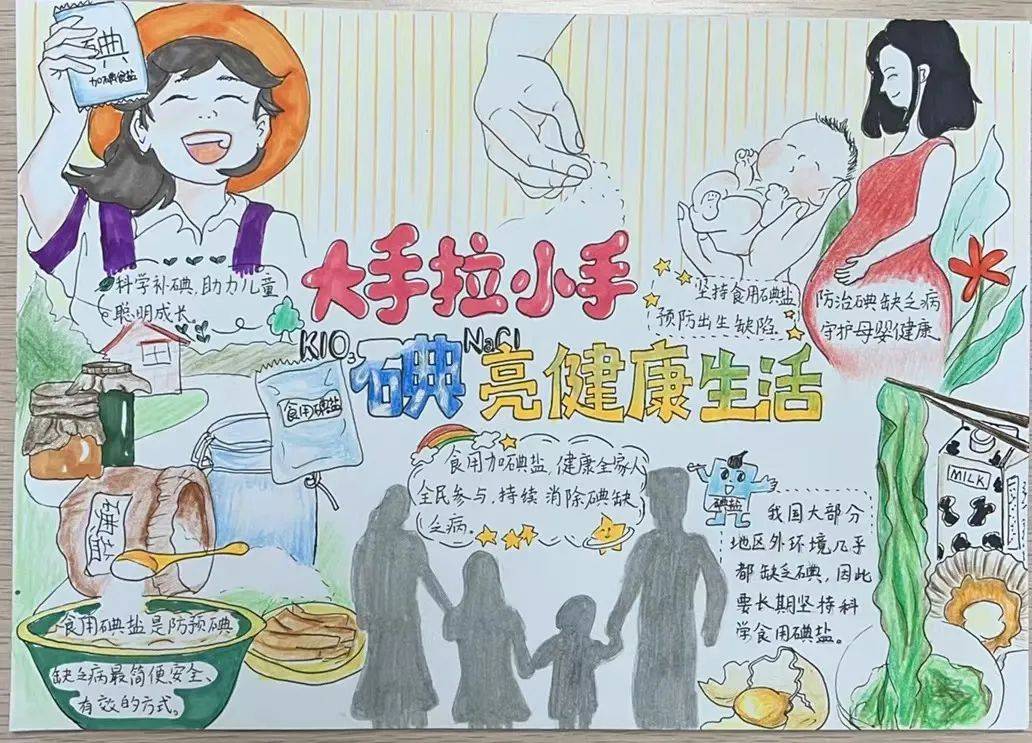 碘
加碘食盐
科学补碘,助力儿童
聪明成长。
大手拉小手
KIO₃
NaCl
碘亮健康生活
坚持食用碘盐
预防出生缺陷.
防治碘缺乏病
守护母婴健康
食用碘盐
食用加碘盐,健康全家人
全民参与,持续消除碘缺
乏病。
碘盐
MILK
我国大部分
地区外环境几乎
都缺乏碘,因此
要长期坚持科
学食用碘盐。
碘盐
食用碘盐是防预碘
缺乏病最简便安全、
有效的方式。